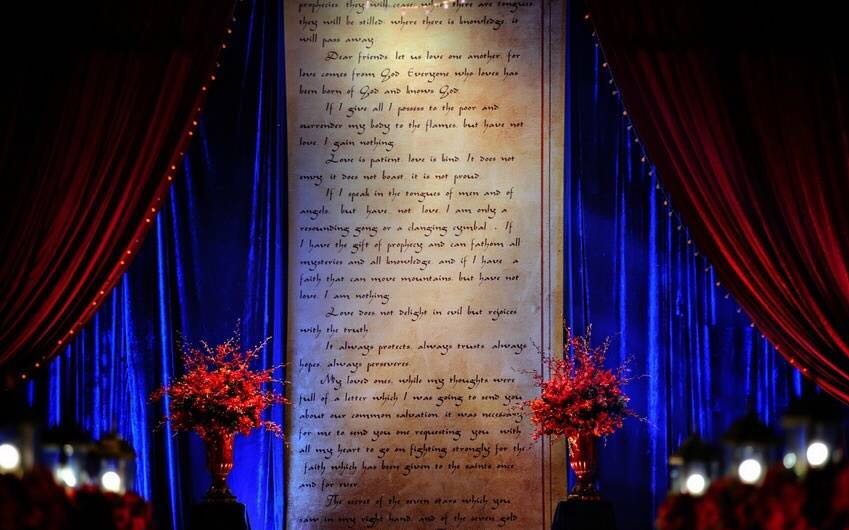 prophecies, they will cease; when there are tongues
they will be stilled; where there is knowledge, it
will pass away.
Dear friends, let us love one another, for
love comes from God. Everyone who loves has
been born of God and knows God.
If I give all I possess to the poor and
surrender my body to the flames, but have not
love, I gain nothing.
Love is patient, love is kind. It does not
envy, it does not boast, it is not proud.
If I speak in the tongues of men and of
angels, but have not love, I am only a
resounding gong or a clanging cymbal. If
I have the gift of prophecy and can fathom all
mysteries and all knowledge, and if I have a
faith that can move mountains, but have not
love, I am nothing.
Love does not delight in evil but rejoices
with the truth.
It always protects, always trusts, always
hopes, always perseveres.
My loved ones, while my thoughts were
full of a letter which I was going to send you
about our common salvation, it was necessary
for me to send you one requesting you with
all my heart to go on fighting strongly for the
faith which has been given to the saints once
and for ever.
The secret of the seven stars which you
saw in my right hand, and of the seven gold